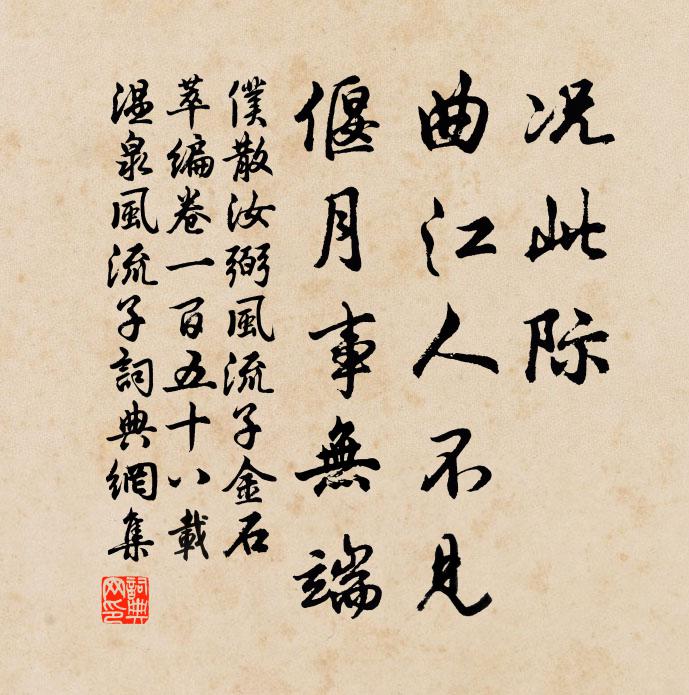 况此际
曲江人不见
偃月事無端
僕散汝弼風流子金石
萃编卷一百五十八載
温泉風流子詞典網集
詞典
网印